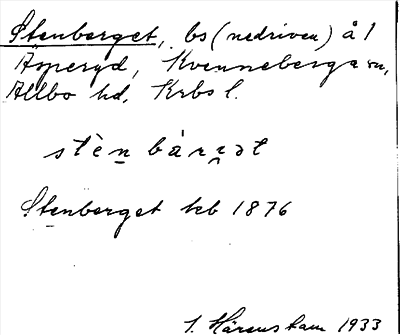 Stenberget, bs (nedriven) å 1
Asperyd, Kvenneberga sn,
Allbo hd. Krbs l.
stèn bárrət
Stenberget kb 1876
1933